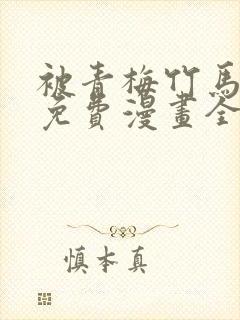 被青梅竹馬
免費漫畫全
慎本真